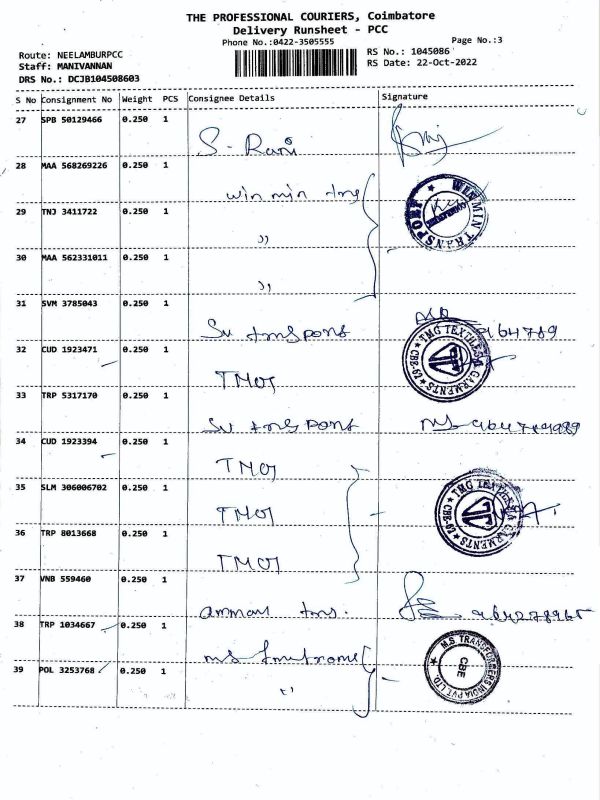 THE PROFESSIONAL COURIERS, Coimbatore
Delivery Runsheet - PCC
Phone No.:0422-3505555
Page No.:3
Route: NEELAMBURPCC
RS No.: 1045086
Staff: MANIVANNAN
RS Date: 22-Oct-2022
DRS No.: DCJB104508603
S No Consignment No Weight PCS Consignee Details Signature
27 SPB 50129466 0.250 1
S - Rani
28 MAA 568269226 0.250 1
win min
WIN MIN TRANSPORT
29 TNJ 3411722 0.250 1
"
30 MAA 562331011 0.250 1
"
31 SVM 3785043 0.250 1
TMG TEXTILES & GARMENTS
CBE-62
32 CUD 1923471 0.250 1
TMG
33 TRP 5317170 0.250 1
34 CUD 1923394 0.250 1
TMG
35 SLM 306006702 0.250 1
TMG
TMG TEXTILES & GARMENTS
CBE-62
36 TRP 8013668 0.250 1
TMG
37 VNB 559460 0.250 1
38 TRP 1034667 0.250 1
M.S. TRANSFORMERS INDIA PVT LTD.
CBE
39 POL 3253768 0.250 1
"